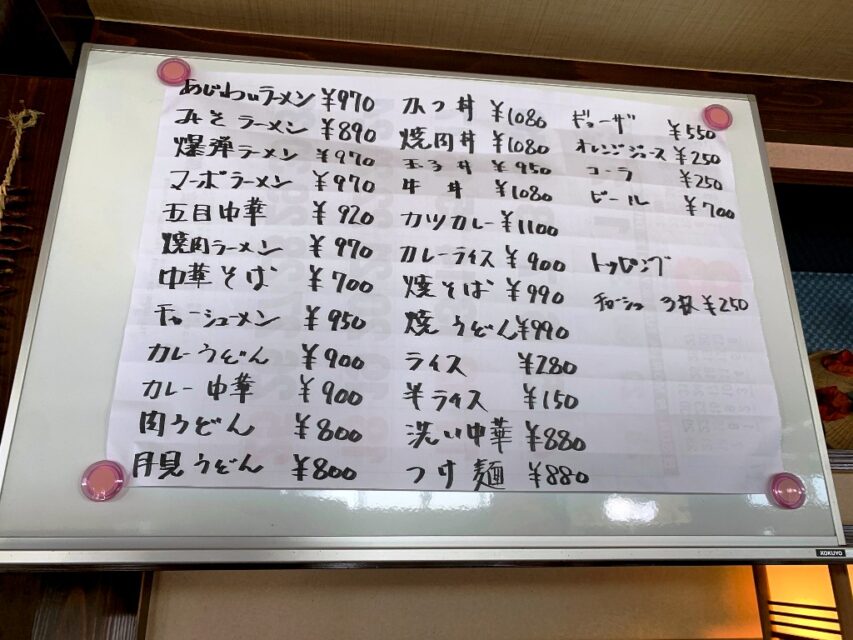 あじわいラーメン ¥970
みそラーメン ¥890
爆弾ラーメン ¥970
マーボラーメン ¥970
五目中華 ¥920
焼肉ラーメン ¥970
中華そば ¥700
チャーシューメン ¥950
カレーうどん ¥900
カレー中華 ¥900
肉うどん ¥800
月見うどん ¥800
かつ丼 ¥1080
焼肉丼 ¥1080
玉子丼 ¥950
牛丼 ¥1080
カツカレー ¥1100
カレーライス ¥900
焼そば ¥990
焼うどん ¥990
ライス ¥280
半ライス ¥150
洗い中華 ¥880
つけ麺 ¥880
ギョーザ ¥550
オレンジジュース ¥250
コーラ ¥250
ビール ¥700
トッピング
チャーシュー 3枚 ¥250
KOKUYO